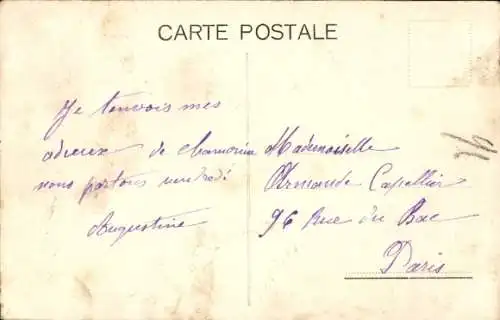 CARTE POSTALE
Je t'envois mes
adieux de Chamonix
nous partons vendredi
Augustine
Mademoiselle
Armande Capellier
96 Rue du Bac
Paris